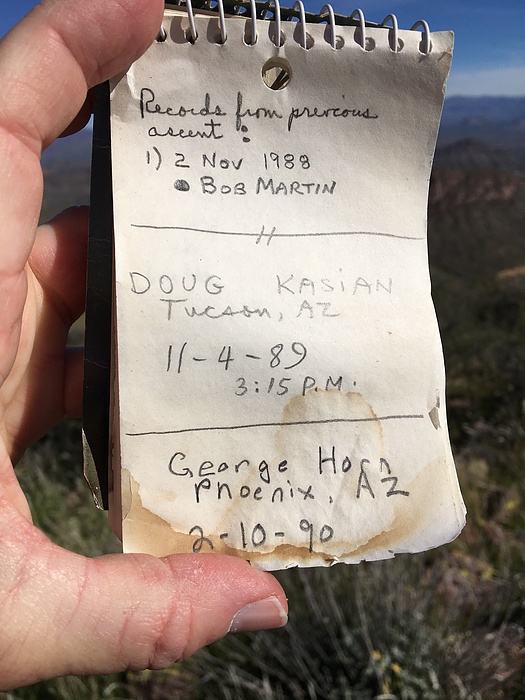 Records from previous
ascent:
1) 2 Nov 1988
• BOB MARTIN
DOUG KASIAN
Tucson, AZ
11-4-89
3:15 P.M.
George Horn
Phoenix, AZ
2-10-90